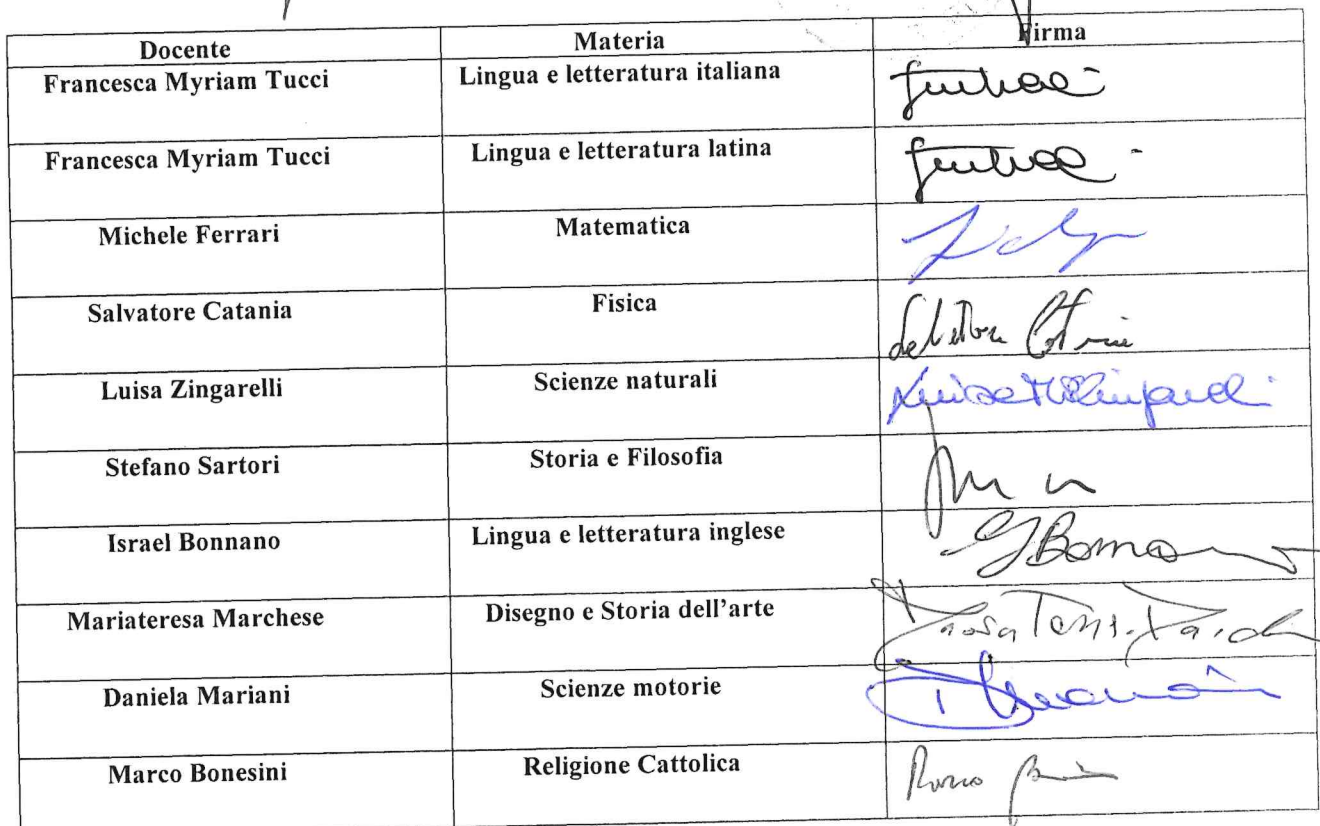 Docente Materia Firma
Francesca Myriam Tucci Lingua e letteratura italiana
Francesca Myriam Tucci Lingua e letteratura latina
Michele Ferrari Matematica
Salvatore Catania Fisica
Luisa Zingarelli Scienze naturali
Stefano Sartori Storia e Filosofia
Israel Bonnano Lingua e letteratura inglese
Mariateresa Marchese Disegno e Storia dell'arte
Daniela Mariani Scienze motorie
Marco Bonesini Religione Cattolica